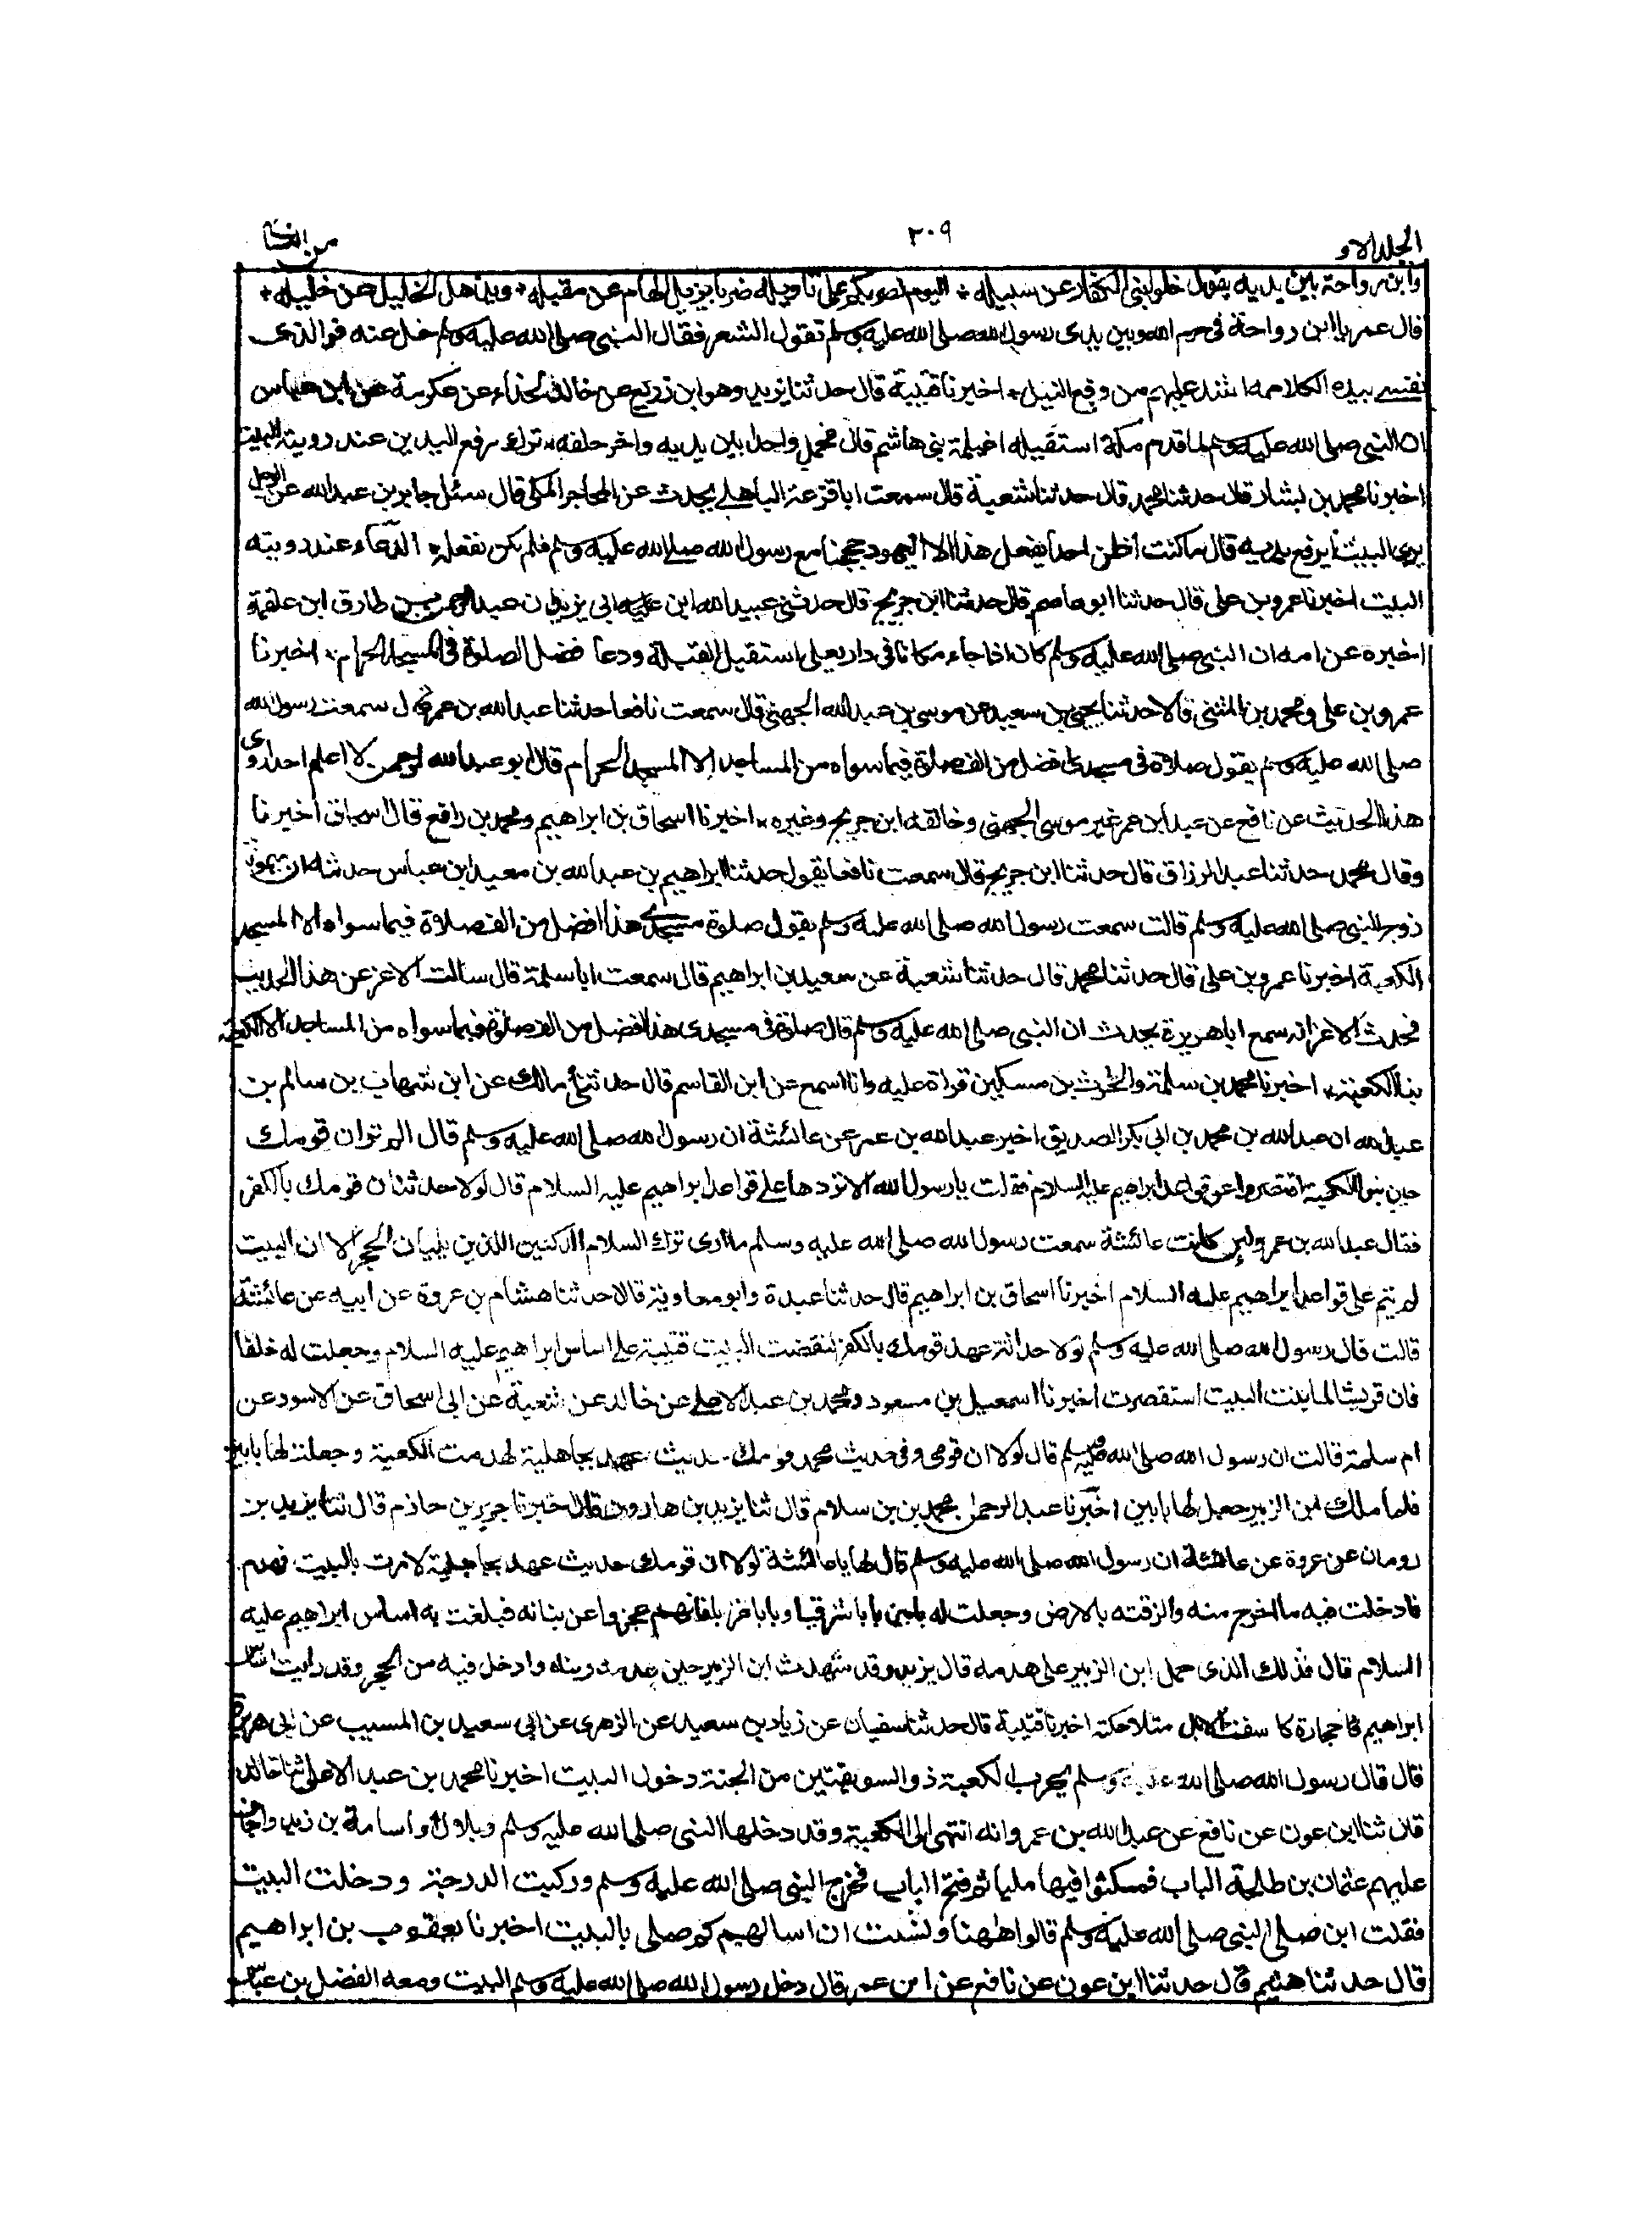 الجلد الاو
٣٠٩
من النسائ
وابن رواحة بين يديه يقول خلوا بنى الكفار عن سبيله * اليوم نضربكم على تاويله ضربا يزيل الهام عن مقيله * ويذهل الخليل عن خليله *
قال عمر يا ابن رواحة فى حرم الله وبين يدى رسول الله صلى الله عليه وسلم تقول الشعر فقال النبى صلى الله عليه وسلم خل عنه فوالذى
نفسى بيده لكلامه اشد عليهم من وقع النبل * اخبرنا قتيبة قال حدثنا يزيد وهو ابن زريع عن خالد الحذاء عن عكرمة عن ابن عباس
ان النبى صلى الله عليه وسلم لما قدم مكة استقبله اغيلمة بنى هاشم قال فحمل واحدا بين يديه واخر خلفه * ترك رفع اليدين عند روية البيت
اخبرنا محمد بن بشار قال حدثنا محمد قال حدثنا شعبة قال سمعت ابا قزعة الباهلى يحدث عن المهاجر المكى قال سئل جابر بن عبد الله عن الرجل
يرى البيت ايرفع يديه قال ما كنت اظن احدا يفعل هذا الا اليهود حججنا مع رسول الله صلى الله عليه وسلم فلم يكن نفعله * الدعاء عند روية
البيت اخبرنا عمرو بن على قال حدثنا ابو عاصم قال حدثنا ابن جريج قال حدثنى عبيد الله ابن ابى يزيد ان عبد الرحمن بن طارق ابن علقمة
اخبره عن امه ان النبى صلى الله عليه وسلم كان اذا جاء مكانا فى دار يعلى استقبل القبلة ودعا فضل الصلوة فى المسجد الحرام * اخبرنا
عمرو بن على ومحمد بن المثنى قالا حدثنا يحيى بن سعيد عن موسى بن عبد الله الجهنى قال سمعت نافعا حدثنا عبد الله بن عمر قال سمعت رسول الله
صلى الله عليه وسلم يقول صلاة فى مسجدى افضل من الف صلوة فيما سواه من المساجد الا المسجد الحرام قال ابو عبد الرحمن لا اعلم احدا روى
هذا الحديث عن نافع عن عبد ابن عمر غير موسى الجهنى وخالفه ابن جريج وغيره * اخبرنا اسحاق بن ابراهيم ومحمد بن رافع قال اسحاق اخبرنا
وقال محمد حدثنا عبد الرزاق قال حدثنا ابن جريج قال سمعت نافعا يقول حدثنا ابراهيم بن عبد الله بن معبد ابن عباس حدثه ان ميمونة
زوج النبى صلى الله عليه وسلم قالت سمعت رسول الله صلى الله عليه وسلم يقول صلوة مسجدى هذا افضل من الف صلاة فيما سواه الا المسجد
الكعبة اخبرنا عمرو بن على قال حدثنا محمد قال حدثنا شعبة عن سعيد بن ابراهيم قال سمعت ابا سلمة قال سالت الاغر عن هذا الحديث
فحدث الاغر انه سمع ابا هريرة يحدث ان النبى صلى الله عليه وسلم قال صلوة فى مسجدى هذا افضل من الف صلوة فيما سواه من المساجد الا الكعبة
بناء الكعبة * اخبرنا محمد بن سلمة والحرث بن مسكين قراة عليه وانا اسمع عن ابن القاسم قال حدثنى مالك عن ابن شهاب بن سالم بن
عبد الله ان عبد الله بن محمد بن ابى بكر الصديق اخبر عبد الله بن عمر عن عائشة ان رسول الله صلى الله عليه وسلم قال الم تر ان قومك
حين بنو الكعبة اقتصروا عن قواعد ابراهيم عليه السلام فقلت يا رسول الله الا تردها على قواعد ابراهيم عليه السلام قال لولا حدثان قومك بالكفر
فقال عبد الله بن عمر ولئن كانت عائشة سمعت رسول الله صلى الله عليه وسلم ما ارى ترك السلام الركنين اللذين يليان الحجر الا ان البيت
لم تتم على قواعد ابراهيم عليه السلام اخبرنا اسحاق بن ابراهيم قال حدثنا عبدة وابو معاوية قالا حدثنا هشام بن عروة عن ابيه عن عائشة
قالت قال رسول الله صلى الله عليه وسلم لولا حداثة عهد قومك بالكفر لنقضت البيت فبنيته على اساس ابراهيم عليه السلام وجعلت له خلفا
فان قريشا لما بنت البيت استقصرت اخبرنا اسمعيل بن مسعود ومحمد بن عبد الاعلى عن خالد عن شعبة عن ابى اسحاق عن الاسود عن
ام سلمة قالت ان رسول الله صلى الله عليه وسلم قال لولا ان قومى وفى حديث محمد قومك حديث عهد بجاهلية لهدمت الكعبة وجعلت لها بابين
فلما ملك ابن الزبير جعل لها بابين اخبرنا عبد الرحمن بن محمد بن سلام قال ثنا يزيد بن هارون قال اخبرنا جرير بن حازم قال ثنا يزيد بن
رومان عن عروة عن عائشة ان رسول الله صلى الله عليه وسلم قال لها يا عائشة لولا ان قومك حديث عهد بجاهلية لامرت بالبيت فهدم
فادخلت فيه ما اخرج منه والزقته بالارض وجعلت له بابين بابا شرقيا وبابا غربيا فانهم عجزوا عن بنائه فبلغت به اساس ابراهيم عليه
السلام قال فذلك الذى حمل ابن الزبير على هدمه قال يزيد وقد شهدت ابن الزبير حين هدمه وبناه وادخل فيه من الحجر وقد رايت اساس
ابراهيم حجارة كا سفت الابل متلاحكة اخبرنا قتيبة قال حدثنا سفيان عن زياد بن سعيد عن الزهرى عن ابى سعيد بن المسيب عن ابى هريرة
قال قال رسول الله صلى الله عليه وسلم يخرب الكعبة ذو السويقتين من الجنة دخول البيت اخبرنا محمد بن عبد الاعلى ثنا خالد
قال ثنا ابن عون عن نافع عن عبد الله بن عمر وانه انتهى الى الكعبة وقد دخلها النبى صلى الله عليه وسلم وبلال واسامة بن زيد واجاف
عليهم عثمان بن طلحة الباب فمكثوا فيها مليا ثم فتح الباب فخرج النبى صلى الله عليه وسلم وركبت الدرجة ودخلت البيت
فقلت اين صلى النبى صلى الله عليه وسلم قالوا ههنا ونسيت ان اسالهم كم صلى بالبيت اخبرنا يعقوب بن ابراهيم
قال حدثنا هشيم قال حدثنا ابن عون عن نافع عن ابن عمر قال دخل رسول الله صلى الله عليه وسلم البيت ومعه الفضل بن عباس